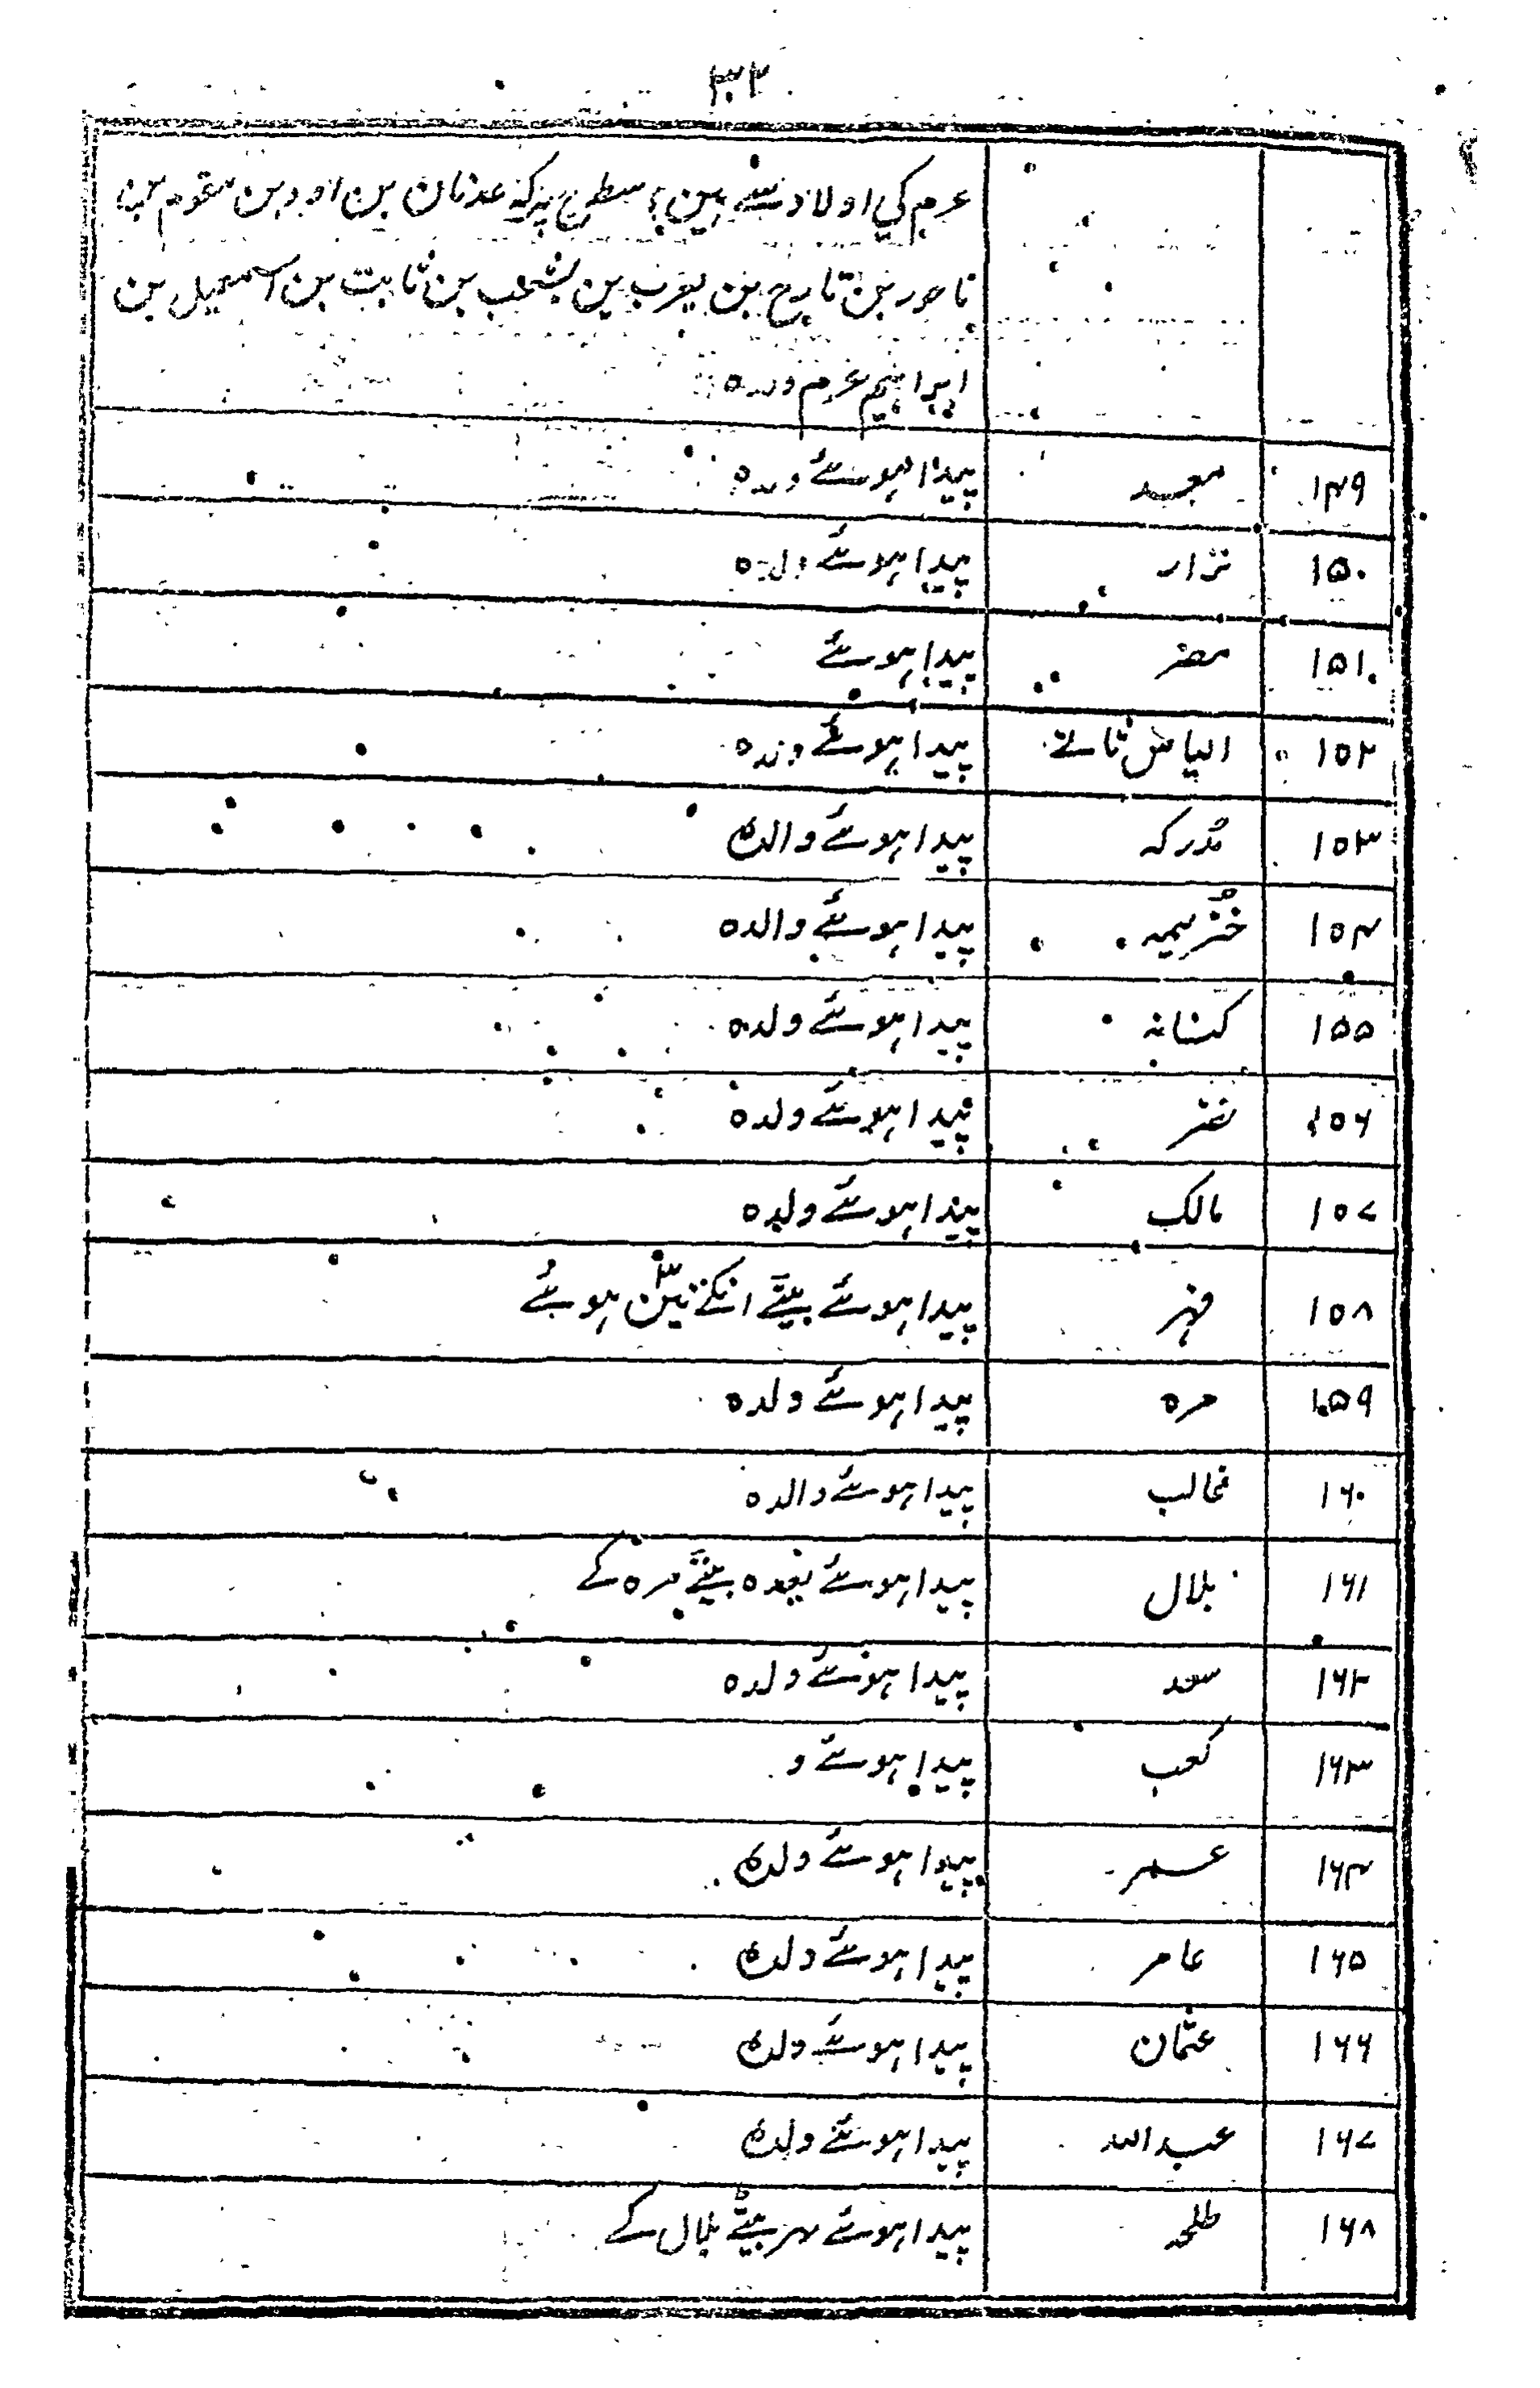 ۳۲
عرم کی اولاد سے ہین اسطرح پر کہ عدنان بن اود بن مقوم بن
ناحور بن تارح بن یعرب بن یشجب بن ثابت بن اسمعیل بن
ابراہیم عرم ولدہ
۱۴۹ معد پیدا ہوئے ولدہ
۱۵۰ نزار پیدا ہوئے ولدہ
۱۵۱ مضر پیدا ہوئے
۱۵۲ الیاس ثانے پیدا ہوئے ولدہ
۱۵۳ مُدرکہ پیدا ہوئے والدہ
۱۵۴ خُزیمہ پیدا ہوئے والدہ
۱۵۵ کنانہ پیدا ہوئے ولدہ
۱۵۶ نضر پیدا ہوئے ولدہ
۱۵۷ مالک پیدا ہوئے ولدہ
۱۵۸ فہر پیدا ہوئے بیٹے انکے تین ۳ ہوئے
۱۵۹ مرہ پیدا ہوئے ولدہ
۱۶۰ غالب پیدا ہوئے والدہ
۱۶۱ ہلال پیدا ہوئے بعدہ بیٹے مرہ کے
۱۶۲ سعد پیدا ہوئے ولدہ
۱۶۳ کعب پیدا ہوئے و
۱۶۴ عمر پیدا ہوئے ولدہ
۱۶۵ عامر پیدا ہوئے ولدہ
۱۶۶ عثمان پیدا ہوئے ولدہ
۱۶۷ عبداللہ پیدا ہوئے ولدہ
۱۶۸ طلحہ پیدا ہوئے بیٹے ہلال کے